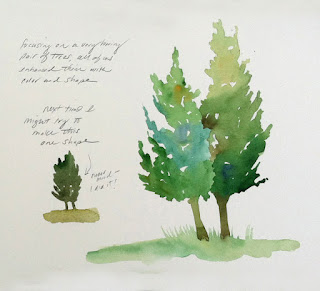 focusing on a very boring
pair of trees, all of us
enhanced them with
color and shape
next time I
might try to
make this
one shape
I did it!